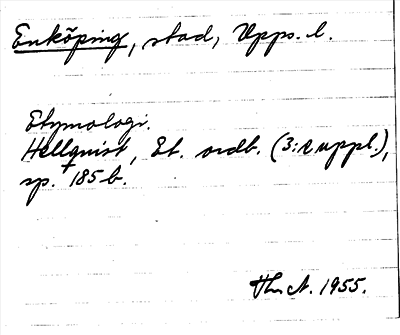 Enköping, stad, Upps. l.
Etymologi.
Hellquist, Et. ordb. (3:e uppl.),
sp. 185 b.
1955.